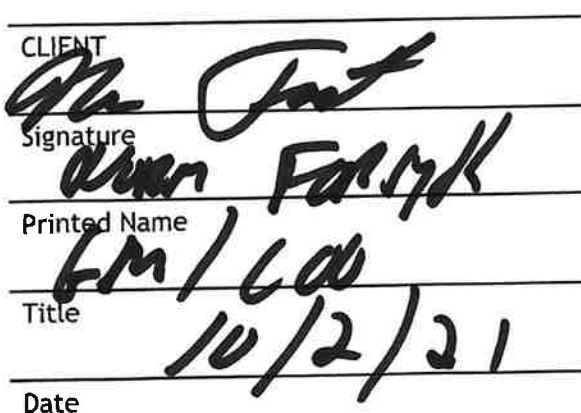 CLIENT
Signature
Norm Forsyth
Printed Name
GM/COO
Title
10/2/21
Date